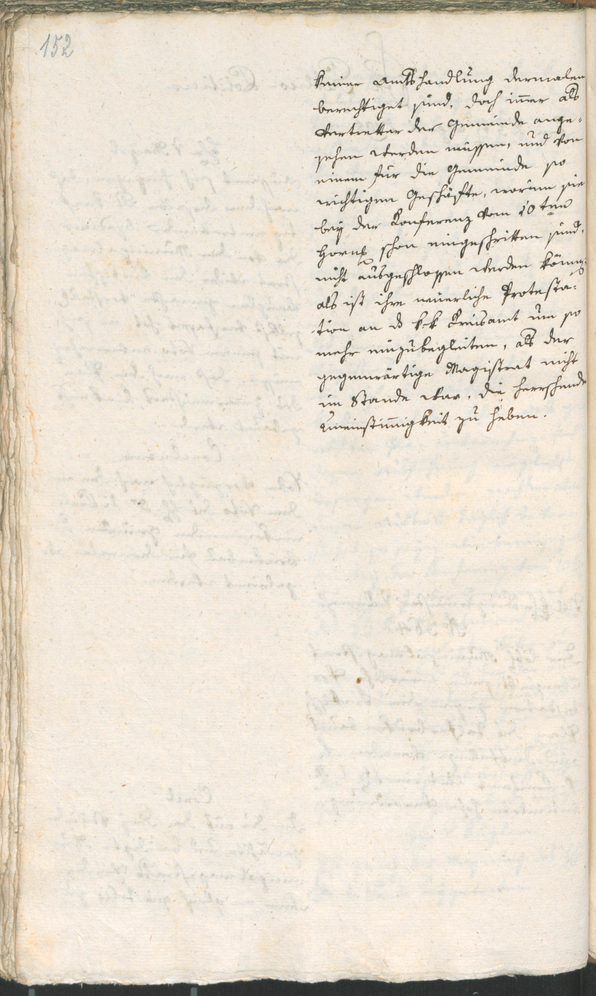 152
keiner Amtshandlung dermalen
berechtiget sind, doch immer als
Vertretter der Gemeinde ange-
sehen werden müssen, und von
einem für die Gemeinde so
wichtigen Geschäfte, worinn sie
bey der Konferenz vom 10ten
Horn. schon eingeschritten sind,
nicht ausgeschlossen werden könn:
als ist ihre neuerliche Protesta-
tion an d k:k Kreisamt um so
mehr einzubegleiten, als der
gegenwärtige Magistrat nicht
im Stande war, die herrschende
Uneinstimmigkeit zu heben.